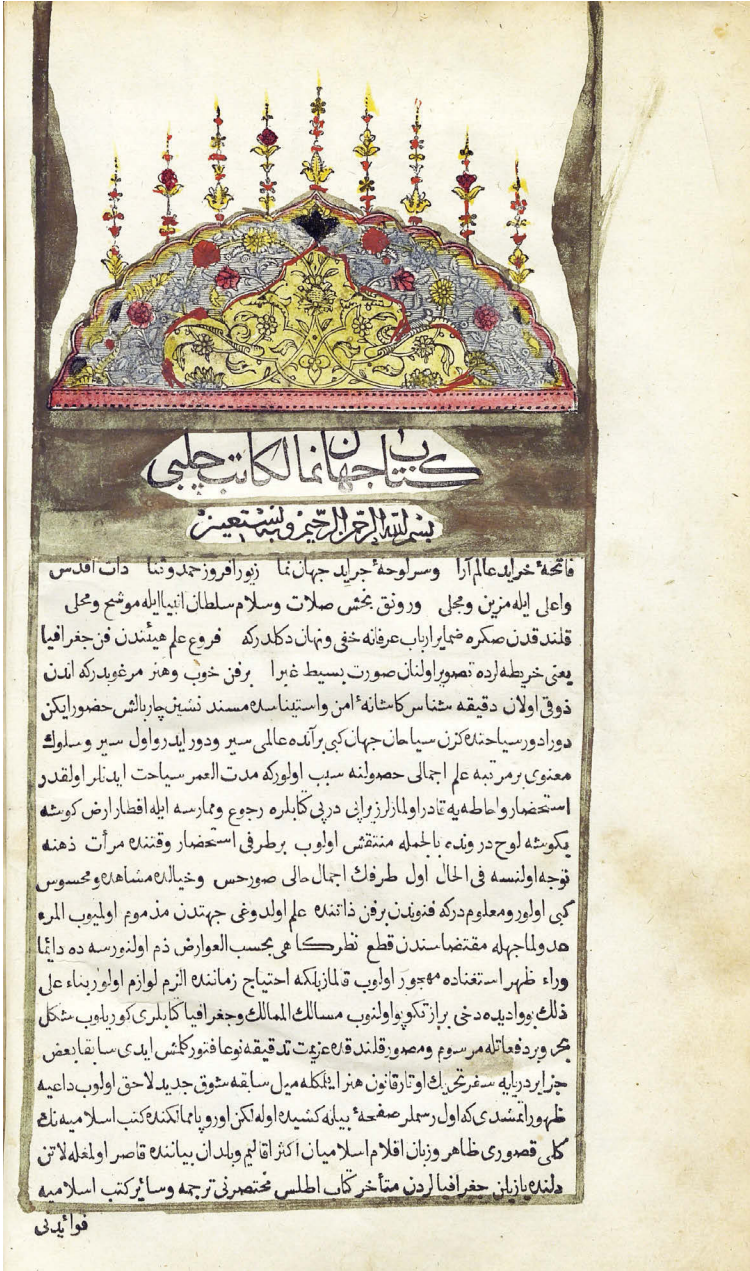 كتاب جهان نما لكاتب چلبي
بسم الله الرحمن الرحيم وبه نستعين
فاتحهٔ خرايد عالم آرا وسر لوحهٔ جرايد جهان نما زيور افروز حمد وثنا ذات اقدس
واعلى ايله مزين ومجلى ورونق بخش صلات وسلام سلطان انبيا ايله موشح ومحلى
قلندقدن صكره ضماير ارباب عرفانه خفى ونهان دكلدر كه فروع علم هيئتدن فن جغرافيا
يعنى خريطه لرده تصوير اولنان صورت بسيط غبرا بر فن خوب وهنر مرغوبدر كه اندن
ذوقى اولان دقيقه شناس كاشانهٔ امن واستيناسده مسند نشين چاربالش حضور ايكن
دورادور سياحتده كزن سياحان جهان كبى بر آنده عالمى سير ودور ايدر واول سير وسلوك
معنوى بر مرتبه علم اجمالى حصولنه سبب اولور كه مدت العمر سياحت ايدنلر اولقدر
استحضار واحاطه يه قادر اولمازلر زيرا پى در پى كتابلره رجوع وممارسه ايله اقطار ارض كوشه
بكوشه لوح درونده بالجمله منتقش اولوب بر طرفى استحضار وقتنده مرأت ذهنه
توجه اولنسه فى الحال اول طرفك اجمال حالى صور حس وخيالده مشاهده ومحسوس
كبى اولور ومعلومدر كه فنوندن بر فن ذاتنده علم اولدوغى جهتدن مذموم اولميوب المرء
عدو لما جهله مقتضاسندن قطع نظر كاهى بحسب العوارض ذم اولنورسه ده دائما
وراء ظهر استغناده مهجور اولوب قالماز بلكه احتياج زماننده الزم لوازم اولور بناء على
ذلك بو واديده دخى براز تكوپو اولنوب مسالك الممالك وجغرافيا كتابلرى كوريلوب شكل
بحر وبر دفعاتله مرسوم ومصور قلندقده عزيمت تدقيقه نوعا فتور كلمش ايدى سابقا بعض
جزاير دريايه سفر تحريك اوتار قانون هنر ايتمكله ميل سابقه شوق جديد لاحق اولوب داعيه
ظهور ايتمشدى كه اول رسملر صفحهٔ بيانه كشيده اوله لكن اوروپا ممالكنده كتب اسلاميه نك
كلى قصورى ظاهر وزبان اقلام اسلاميان اكثر اقاليم وبلدان بياننده قاصر اولمغله لاتن
دلنده يازيلن جغرافيالردن متأخر كتاب اطلس مختصرنى ترجمه وساير كتب اسلاميه
فوائدنى